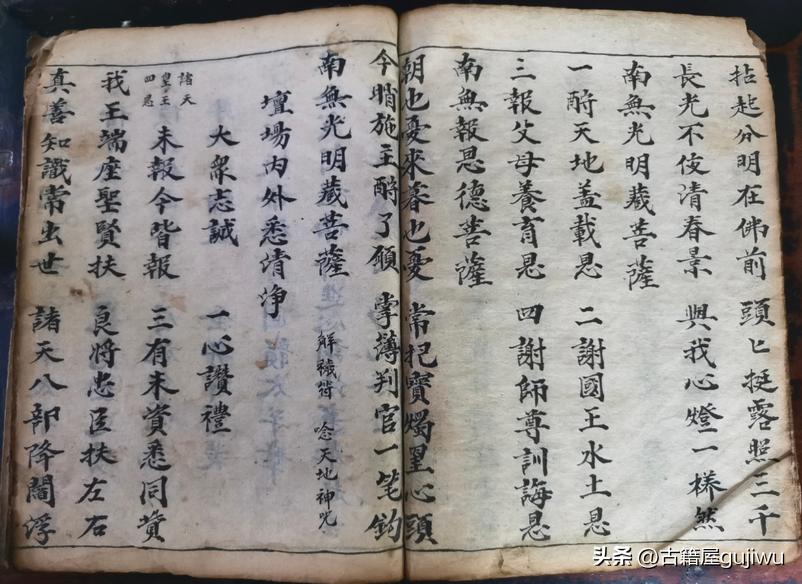 拈起分明在佛前　頭匕挺露照三千
長光不伇清春景　與我心燈一様然
南無光明藏菩薩
一酧天地盖載恩　二謝國王水土恩
三報父母養育恩　四謝師尊訓誨恩
南無報恩德菩薩
朝也憂來暮也憂　常把寳燭罣心頭
今朝施主酧了願　掌薄判官一笔鈎
南無光明藏菩薩　解穢符　唸天地神咒
壇場内外悉清淨
大衆志誠　一心讚禮
諸天皇王四恩　未報今皆報　三有未資悉同資
我王端座聖賢扶　良将忠臣扶左右
真善知識常出世　諸天八部降閻浮
头条 @古籍屋gujiwu